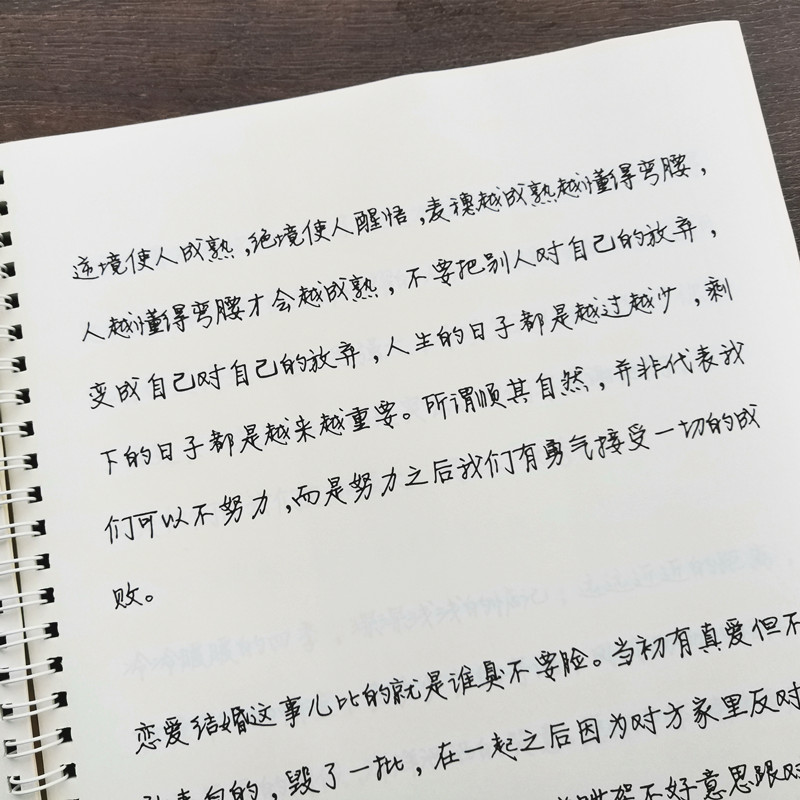 逆境使人成熟,绝境使人醒悟,麦穗越成熟越懂得弯腰,
人越懂得弯腰才会越成熟,不要把别人对自己的放弃,
变成自己对自己的放弃,人生的日子都是越过越少,剩
下的日子都是越来越重要。所谓顺其自然,并非代表我
们可以不努力,而是努力之后我们有勇气接受一切的成
败。
恋爱结婚这事儿比的就是谁臭不要脸。当初有真爱但不
表白的,毁了一批,在一起之后因为对方家里反对
不好意思跟对